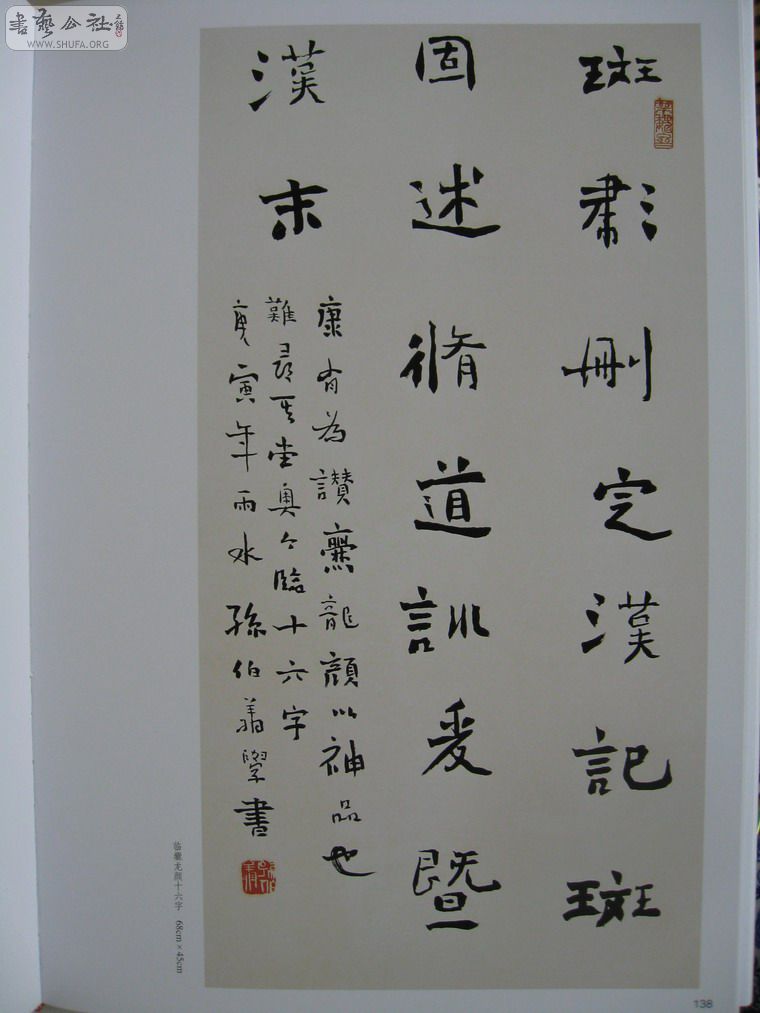 書藝公社
WWW.SHUFA.ORG
斑彪刪定漢記斑
固述脩道訓爰暨
漢末
康有為讚爨龍顏以神品也
難尋其堂奧今臨十六字
庚寅年雨水孫伯翔學書
临爨龙颜十六字 68cm×45cm
138